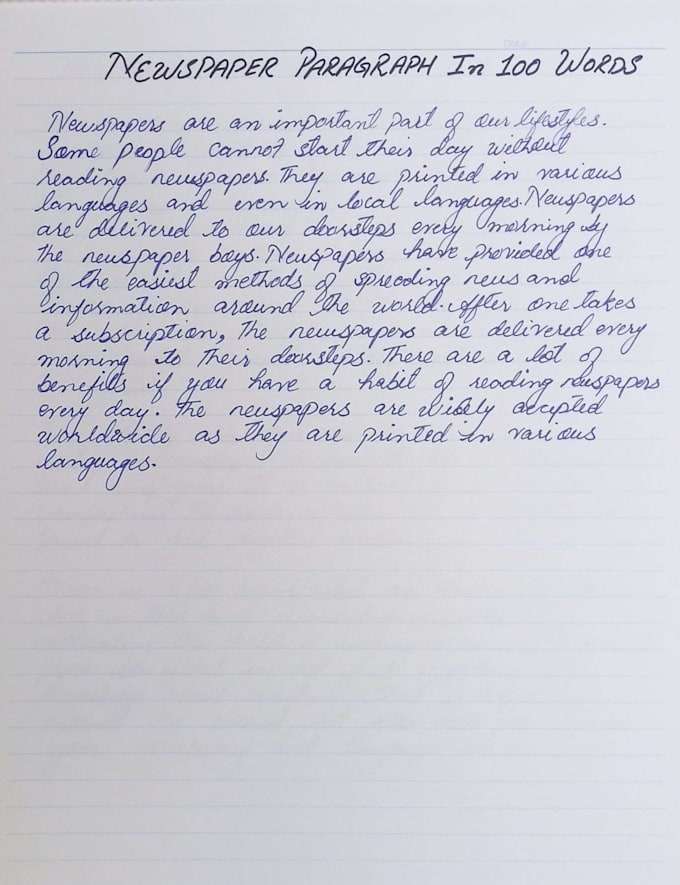 NEWSPAPER PARAGRAPH In 100 WORDS
Newspapers are an important part of our lifestyles.
Some people cannot start their day without
reading newspapers. They are printed in various
languages and even in local languages. Newspapers
are delivered to our doorsteps every morning by
the newspaper boys. Newspapers have provided one
of the easiest methods of spreading news and
information around the world. After one takes
a subscription, the newspapers are delivered every
morning to their doorsteps. There are a lot of
benefits if you have a habit of reading newspapers
every day. The newspapers are widely accepted
worldwide as they are printed in various
languages.